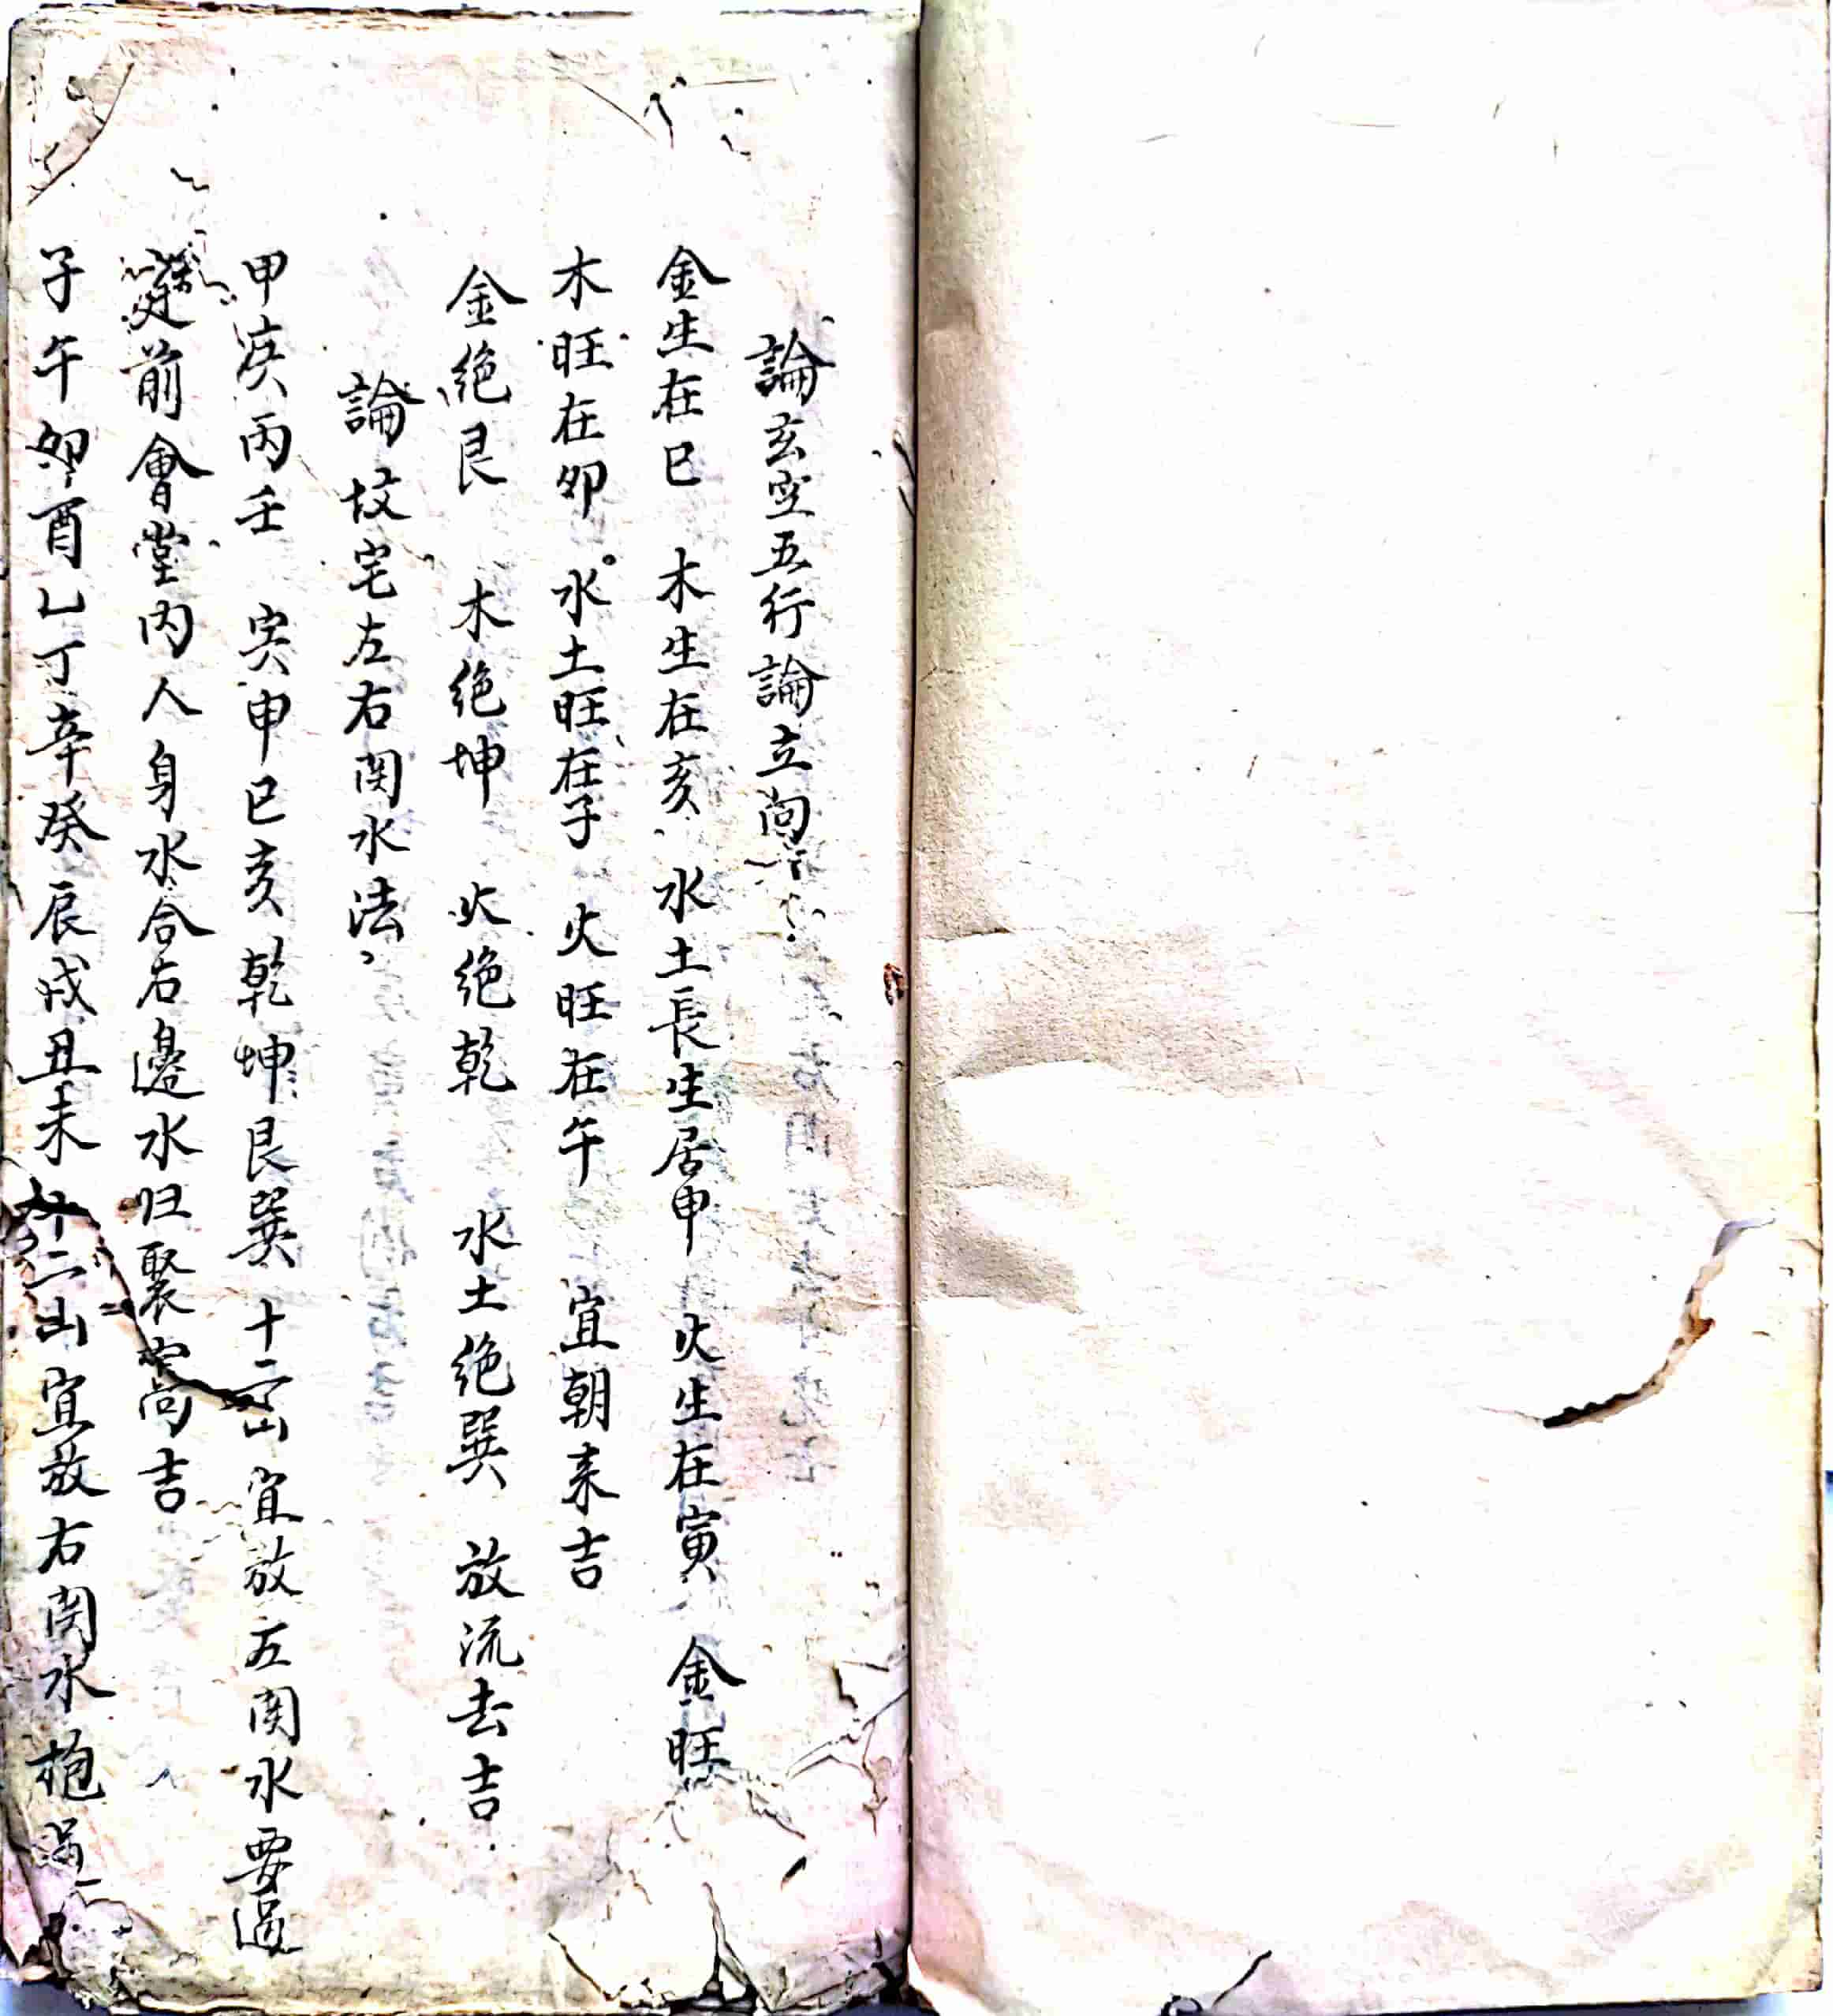 論玄空五行論立向
金生在巳 木生在亥 水土長生居申 火生在寅 金旺
木旺在卯 水土旺在子 火旺在午 宜朝来吉
金绝艮 木绝坤 火绝乾 水土绝巽 放流去吉
論坟宅左右関水法
甲庚丙壬 寅申巳亥乾坤艮巽十二山宜放左関水要過
前會堂内人身水合右邊水归聚 尚吉
子午卯酉乙丁辛癸辰戌丑未 十二山宜放右関水抱過